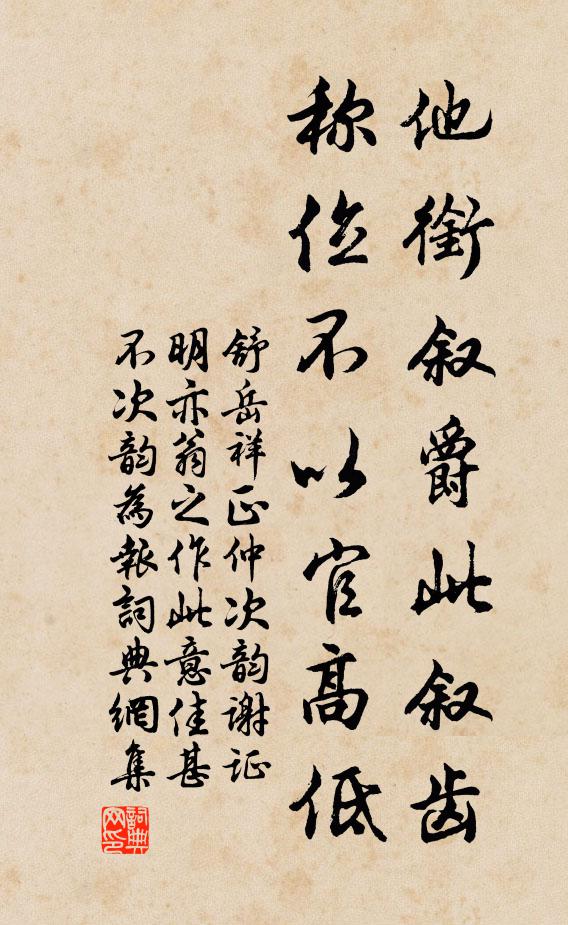 他衔叙爵此叙齿
称位不以官高低
舒岳祥正仲次韵谢证
明亦翁之作此意佳甚
不次韵為報詞典網集
詞典网印